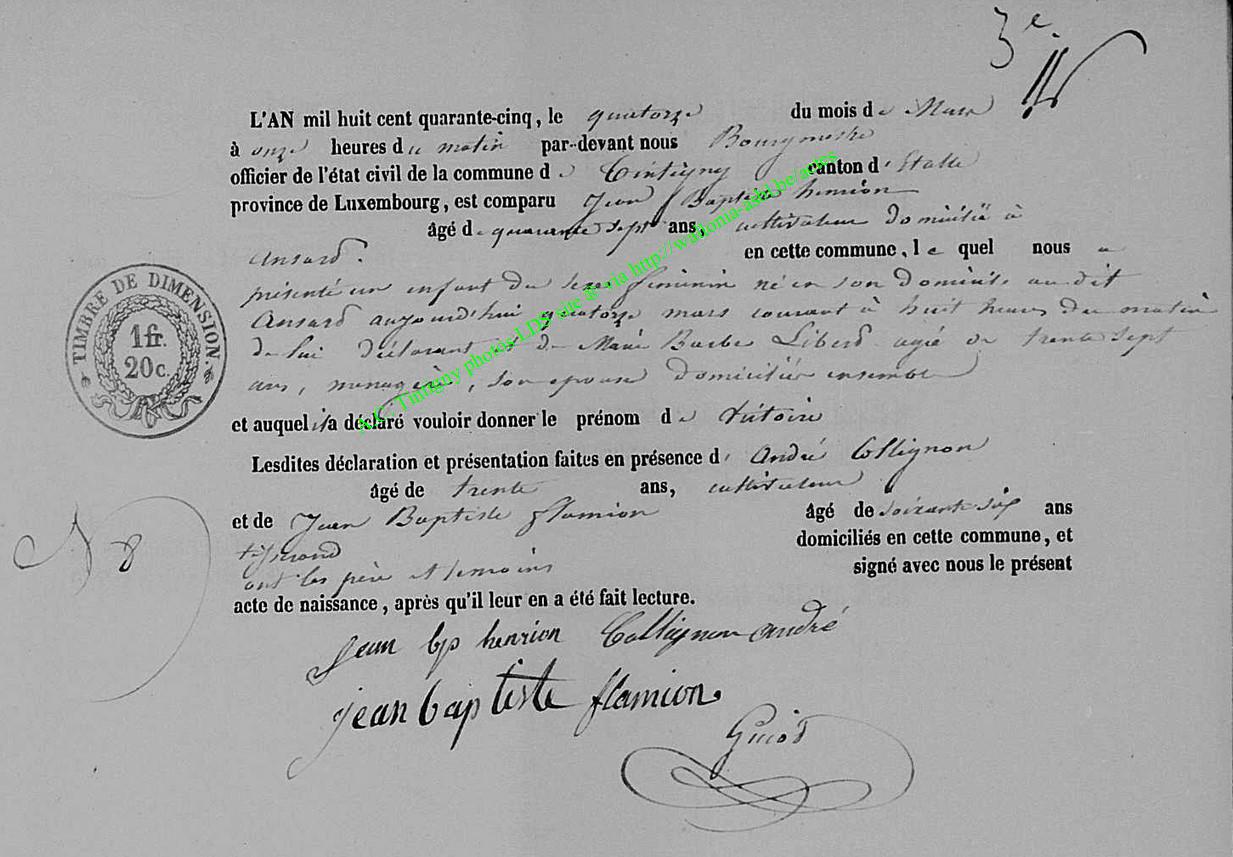 3e
L'AN mil huit cent quarante-cinq, le quatorze du mois de Mars
à onze heures du matin par-devant nous Bourgmestre
officier de l'état civil de la commune de Tintigny canton d'Etalle
province de Luxembourg, est comparu Jean Baptiste henrion
âgé de quarante sept ans, cultivateur domicilié à
Ansard. en cette commune, lequel nous a
présenté un enfant du sexe féminin né en son domicile audit
Ansard aujourd'hui quatorze mars courant à huit heures du matin
de lui déclarant et de Marie Barbe Liberd agée de trente sept
ans, menagère, son epouse domiciliés ensemble
et auquel il a déclaré vouloir donner le prénom de Victoire
Lesdites déclaration et présentation faites en présence d'André Collignon
âgé de trente ans, cultivateur
et de Jean Baptiste flamion âgé de soixante six ans
tisserand domiciliés en cette commune, et
ont les père et temoins signé avec nous le présent
acte de naissance, après qu'il leur en a été fait lecture.
TIMBRE DE DIMENSION.
1fr.
20c.
N 8
jean bp henrion Collignon andré
jean baptiste flamion
Guiot
A.C. Tintigny photos LDS site @ via http://wallonia-asbl.be/actes